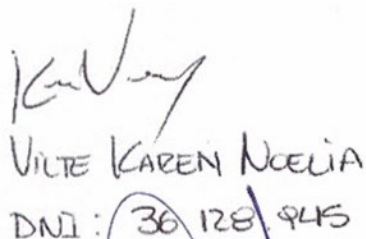 VILTE KAREN NOELIA
DNI: 36 128.945